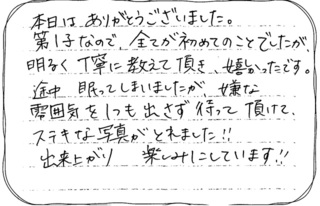 本日は、ありがとうございました。
第1子なので、全てが初めてのことでしたが、
明るく丁寧に教えて頂き、嬉しかったです。
途中 眠ってしまいましたが、嫌な
雰囲気を1つも出さず待って頂けて、
ステキな写真がとれました!!
出来上がり 楽しみにしています!!